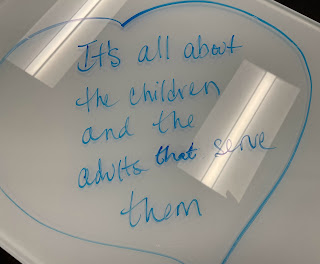 It's all about
the children
and the
adults that serve
them